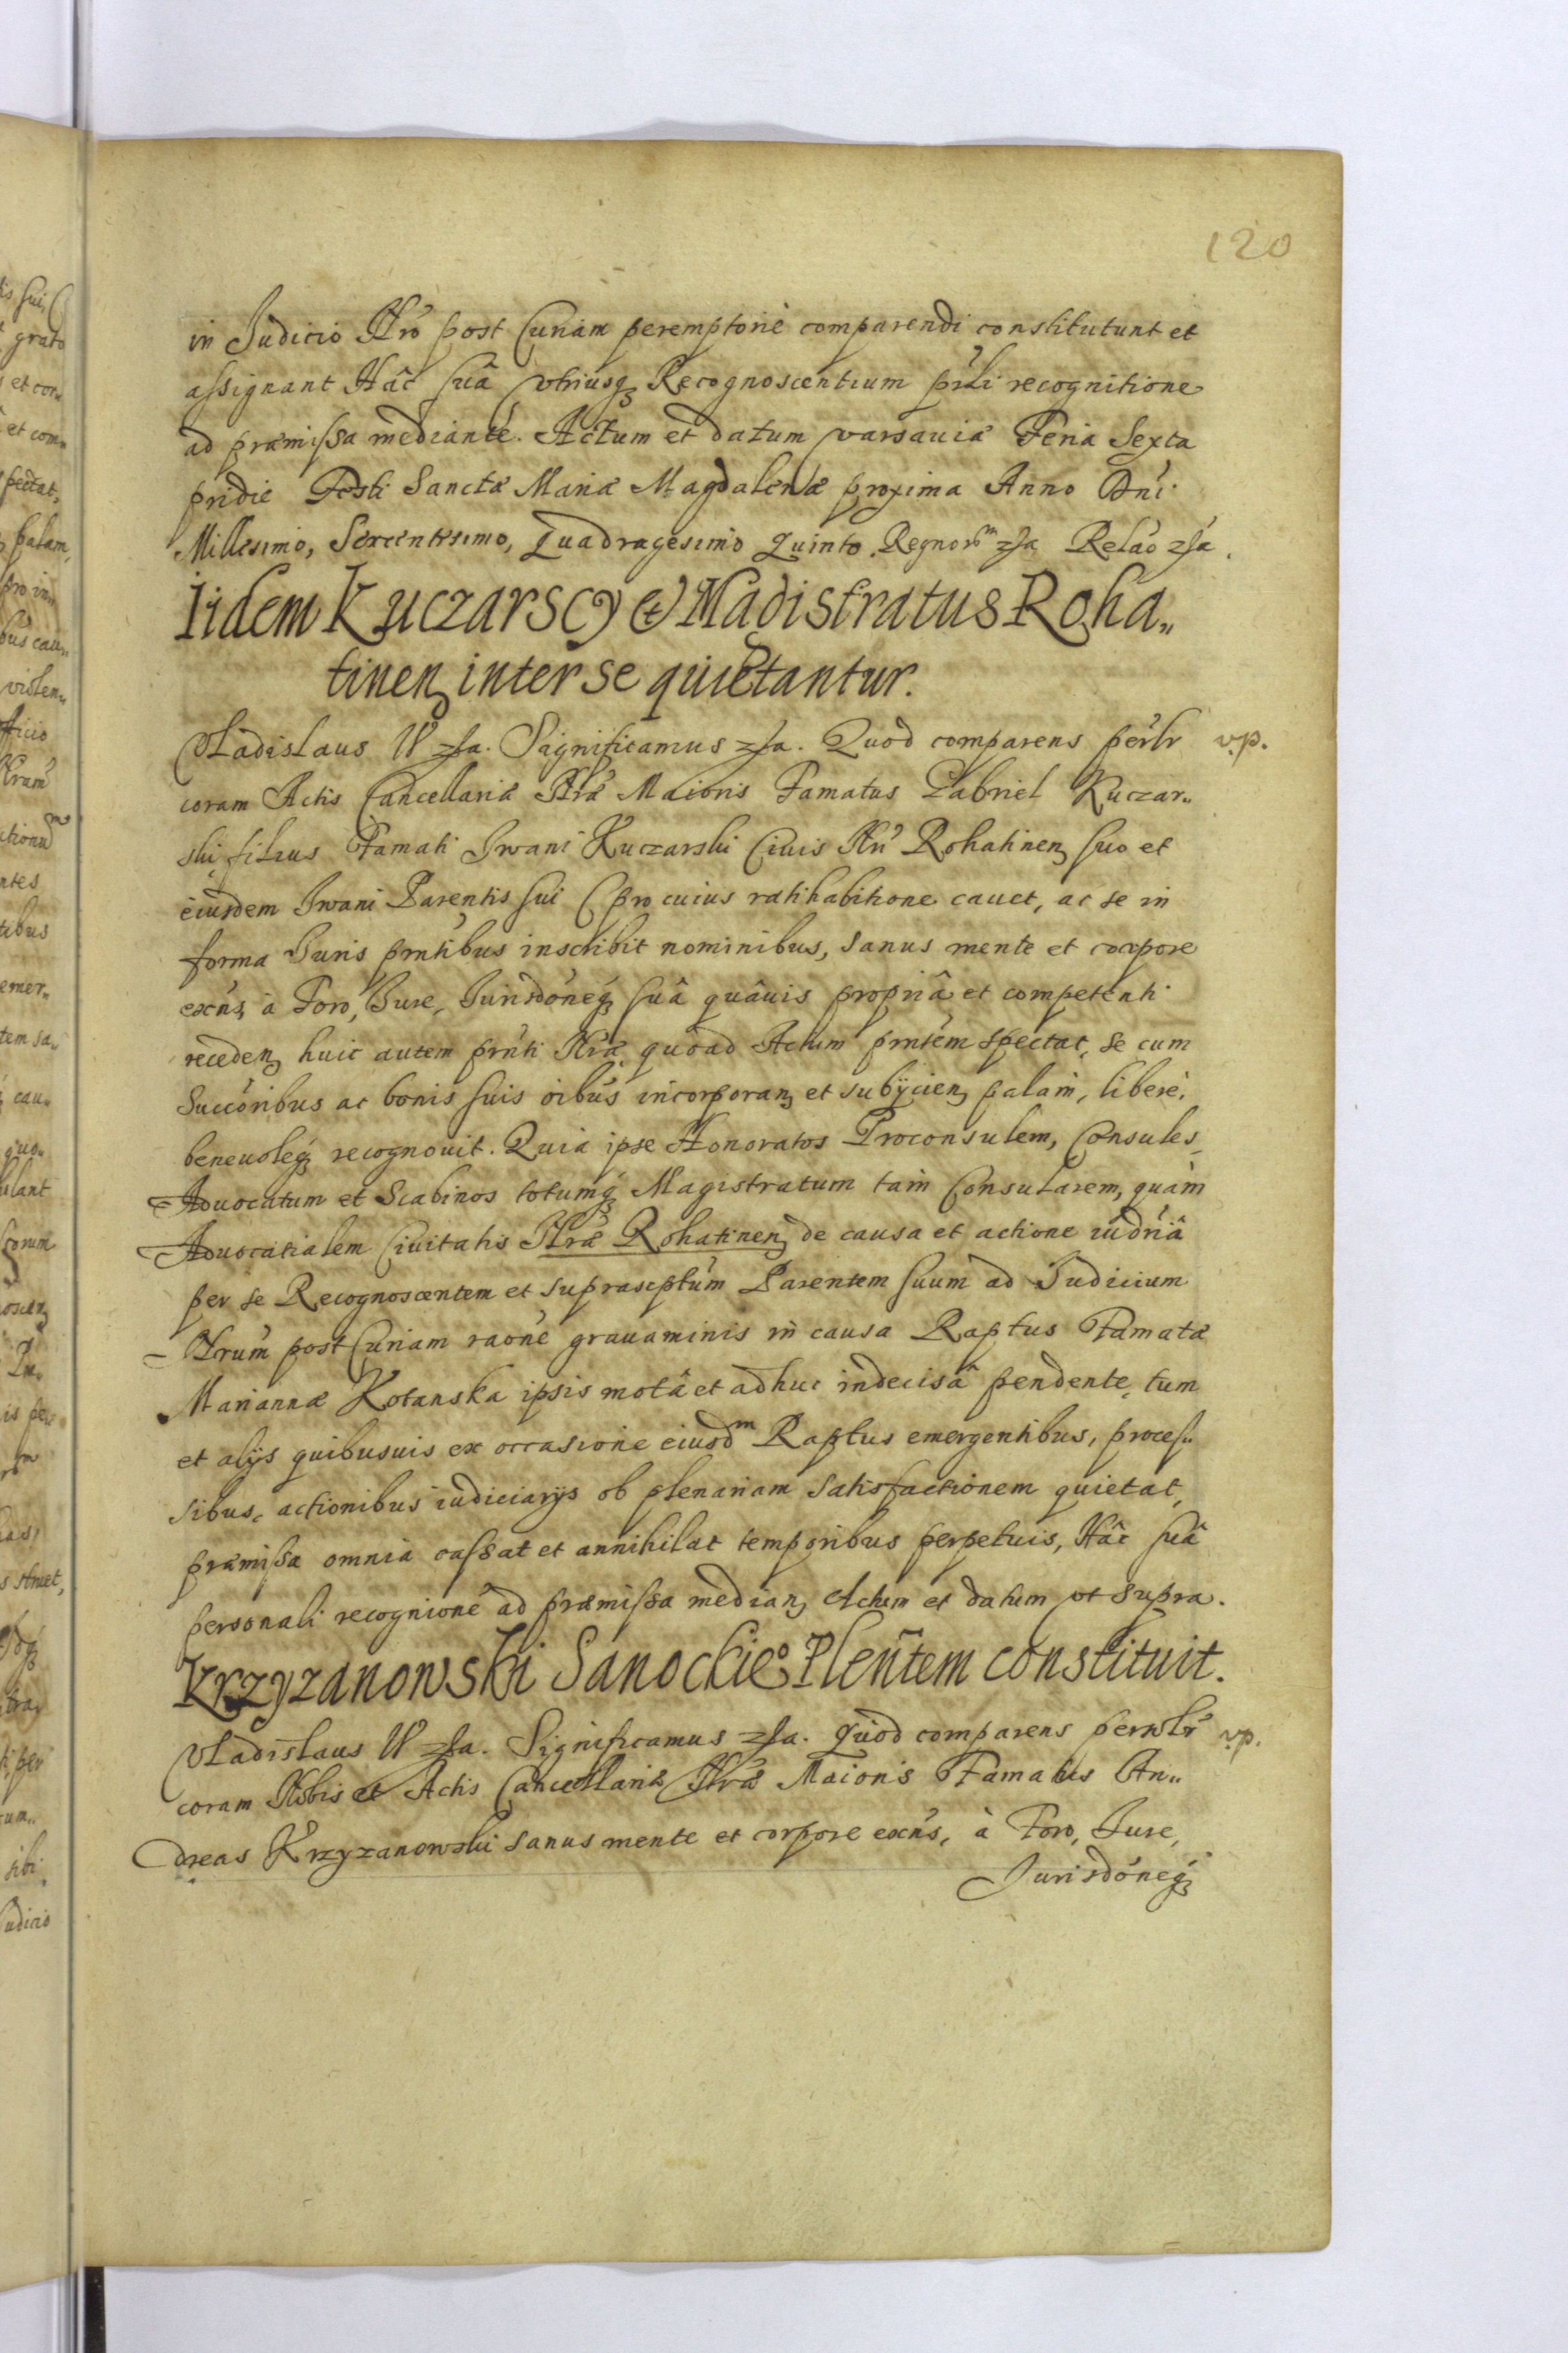 120
in Judicio Nrô post Curiam peremptorie comparendi constituunt et
assignant Hâc suâ utriusq Recognoscentium prśli recognitione
ad præmissa mediante. Actum et datum Varsaviæ Feria Sexta
pridie Festi Sanctæ Mariæ Magdalenæ proxima Anno Dni
Millesimo, Sexcentesimo, Quadragesimo Quinto. Regnorm zsa Relâo zsa.
Iidem Kuczarscy et Magistratus Roha„
tinen inter se quietantur.
Vladislaus IV zsa. Significamus zsa. Quod comparens perlr v.p.
coram Actis Cancellariæ Nræ Maioris Famatus Gabriel Kuczar„
ski filius Famati Iwani Kuczarski Civis Nri Rohatinen suo et
eiusdem Iwani Parentis sui (pro cuius ratihabitione cavet, ac se in
forma Juris prntibus inscribit nominibus, sanus mente et corpore
exns, à Foro, Jure, Jurisdôneq suâ quâvis propriâ et competenti
receden huic autem prnti Nræ quoad Actum prntem spectat, se cum
Succoribus ac bonis suis oibus incorporan et subijcien palam, libere,
benevoleq recognovit. Quia ipse Honoratos Proconsulem, Consules
Advocatum et Scabinos totumq Magistratum tam Consularem, quàm
Advocatialem Civitatis Nræ Rohatinen de causa et actione iudriâ
per se Recognoscentem et suprascptum Parentem suum ad Judicium
Nrum post Curiam raone gravaminis in causa Raptus Famatæ
Mariannæ Kotanska ipsis motâ et adhuc indecisâ pendente, tum
et alijs quibusvis ex occasione eiusdm Raptus emergentibus, proces„
sibus, actionibus iudiciarijs ob plenariam satisfactionem quietat,
præmissa omnia cassat et annihilat temporibus perpetuis, Hâc suâ
personali recognione ad præmissa median Actum et datum ut supra.
Krzyzanowski Sanockiego Plentem constituit.
Vladislaus IV zsa. Significamus zsa. Quod comparens personlr v.p.
coram Nobis et Actis Cancellariæ Nræ Maioris Famatus An„
dreas Krzyzanowski sanus mente et corpore exns, à Foro, Jure,
Jurisdôneq